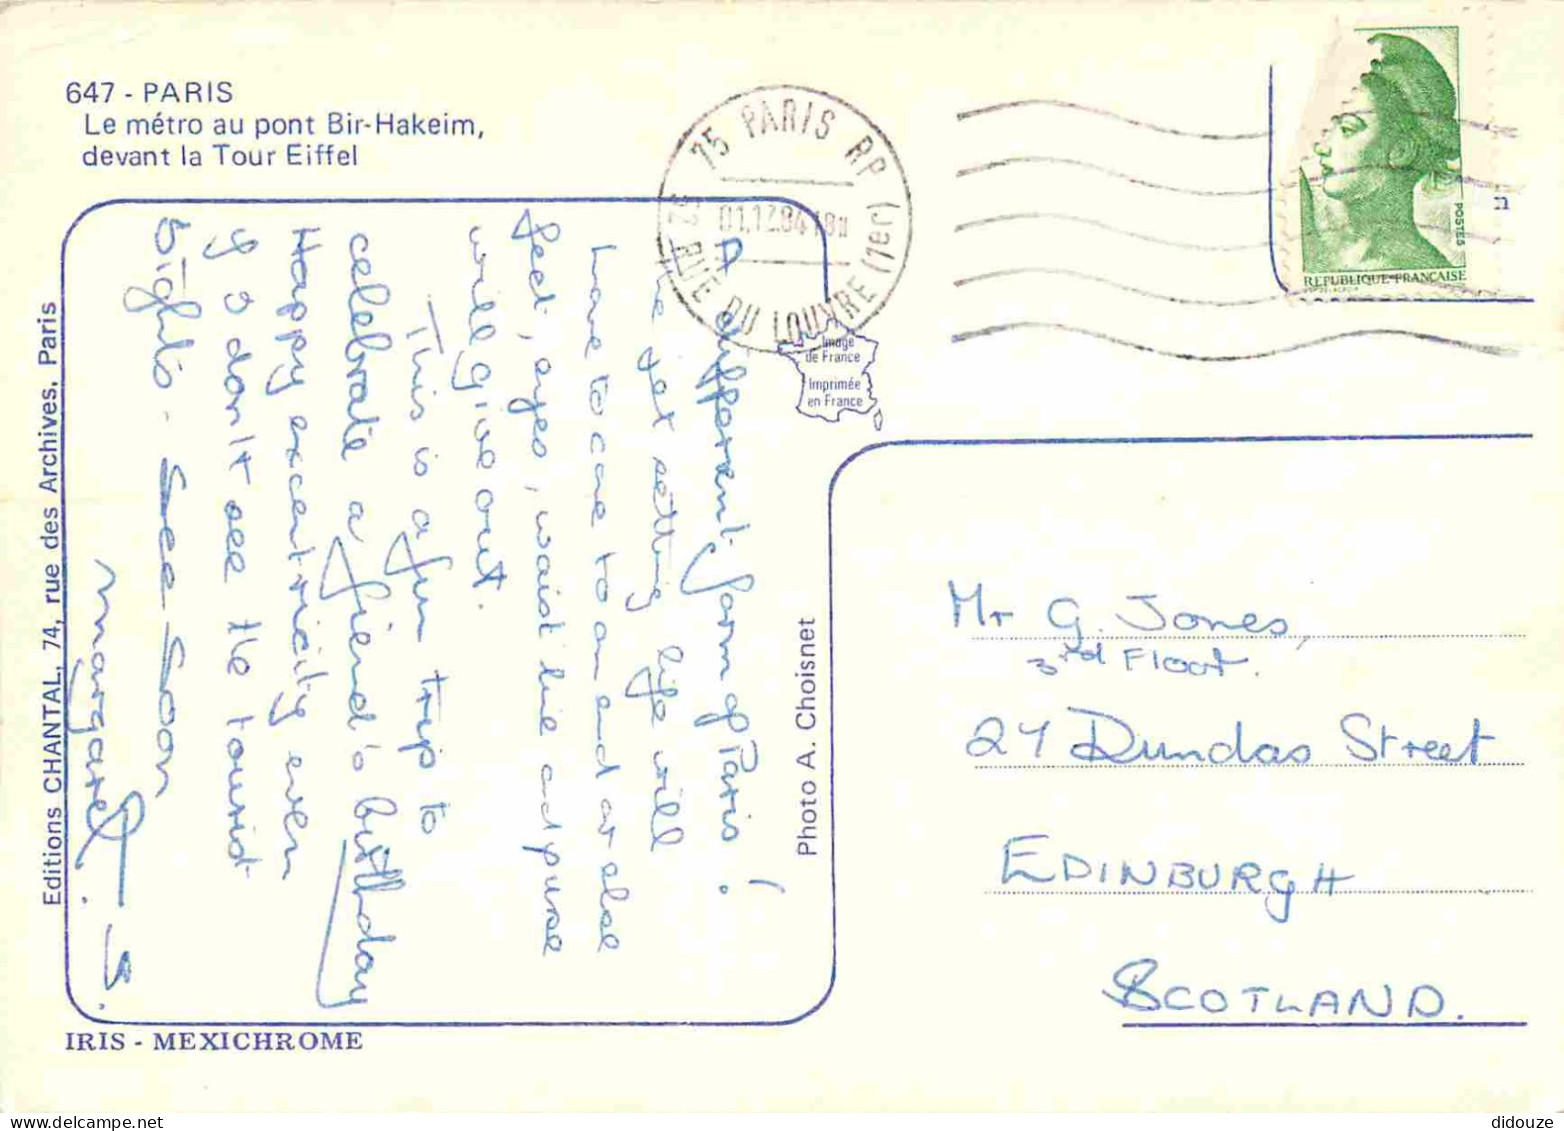 647 - PARIS
Le métro au pont Bir-Hakeim,
devant la Tour Eiffel
75 PARIS RP (1er)
52 RUE DU LOUVRE
01.12.84 18H
POSTES
REPUBLIQUE FRANÇAISE
Image
de France
Imprimée
en France
A different form of Paris!
The jet setting life will
have to come to an end or else
feet, eyes, waist line and purse
will give out.
This is a fun trip to
celebrate a friend's birthday
Happy excentricity even
if I don't see the tourist
sights - See Soon
Margaret. B.
Editions CHANTAL, 74, rue des Archives. Paris
Photo A. Choisnet
IRIS - MEXICHROME
Mr G. Jones,
3rd Floor.
27 Dundas Street
EDINBURGH
SCOTLAND.
didouze